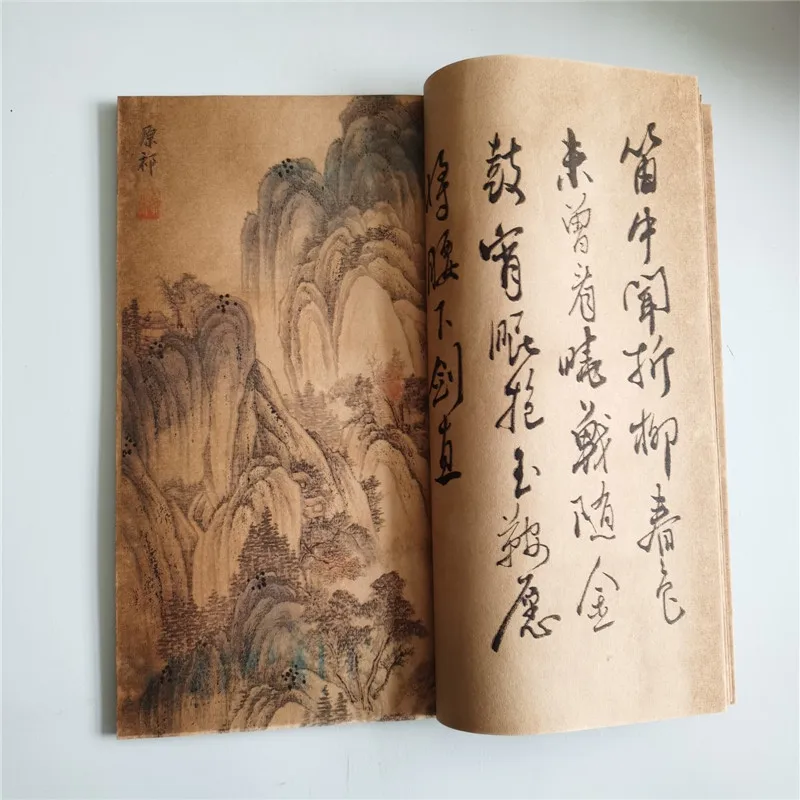 笛中聞折柳春色
未曾看曉戰随金
鼓宵眠抱玉鞍愿
将腰下劍直
原祁